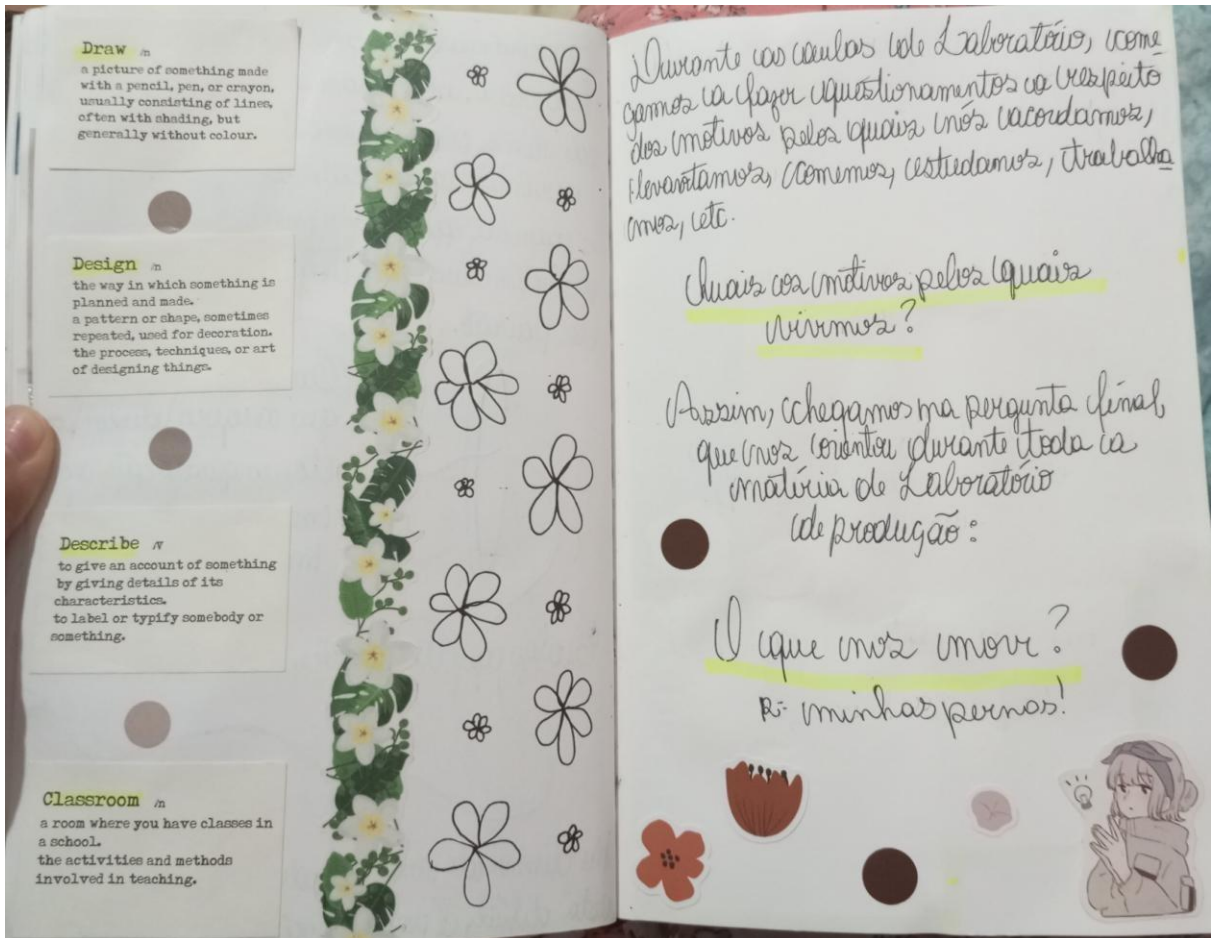 Draw /n
a picture of something made
with a pencil, pen, or crayon,
usually consisting of lines,
often with shading, but
generally without colour.
Design /n
the way in which something is
planned and made.
a pattern or shape, sometimes
repeated, used for decoration.
the process, techniques, or art
of designing things.
Describe /v
to give an account of something
by giving details of its
characteristics.
to label or typify somebody or
something.
Classroom /n
a room where you have classes in
a school.
the activities and methods
involved in teaching.
Durante as aulas de Laboratório, come
çamos a fazer questionamentos a respeito
dos motivos pelos quais nós acordamos,
levantamos, comemos, estudamos, trabalha
mos, etc.
Quais os motivos pelos quais
vivemos?
Assim, chegamos na pergunta final,
que nos orientou durante toda a
matéria de Laboratório
de produção:
O que nos move?
R- minhas pernas!